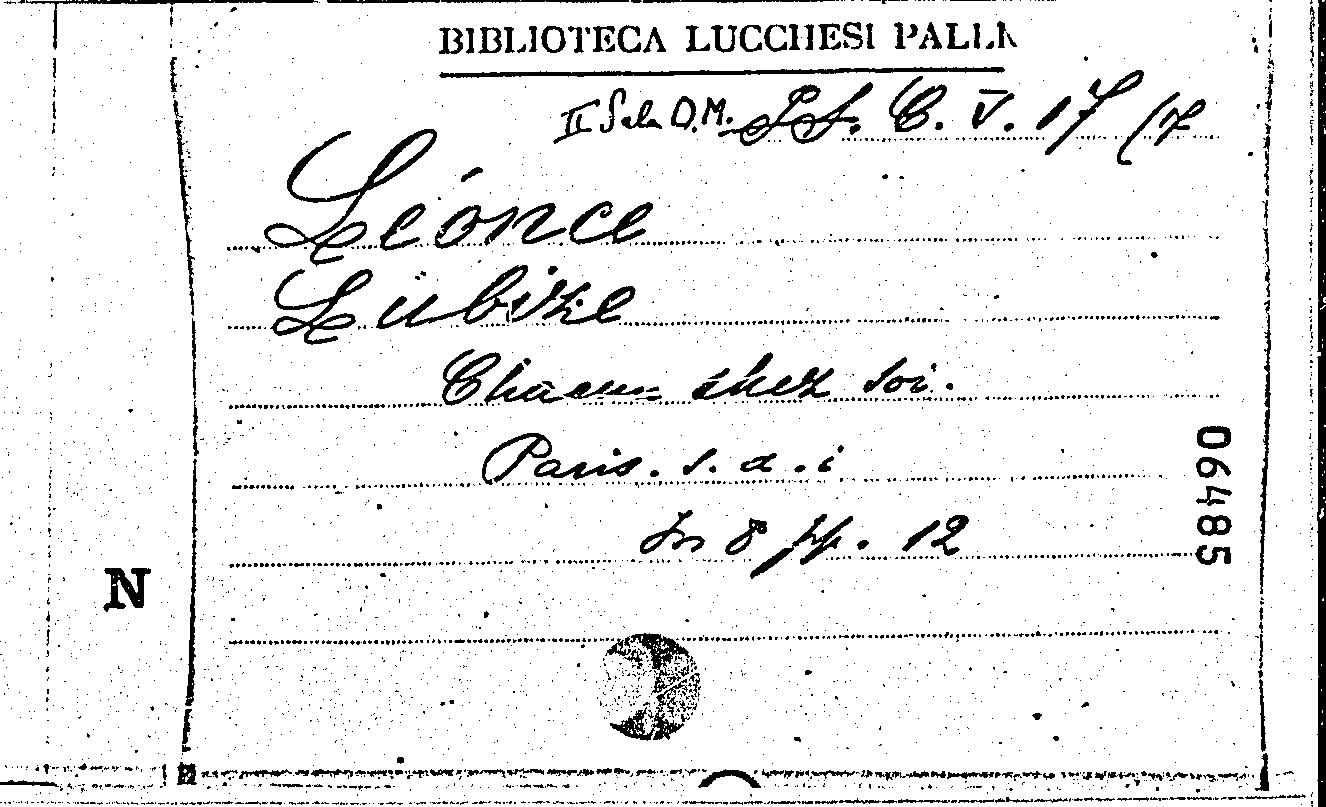 BIBLIOTECA LUCCHESI PALLI
II Sala D.M. C. V. 17 (17
Léonce
Lubize
Chacun chez soi.
Paris. s. a. i
In 8° pp. 12
06485
N